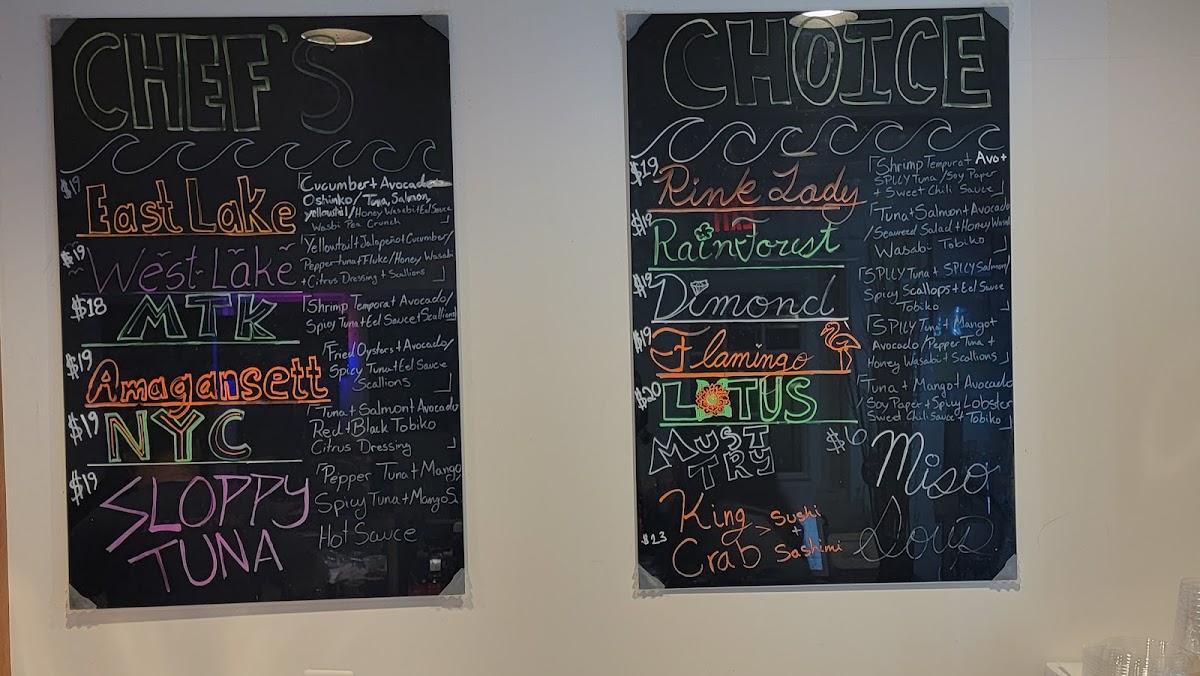 CHEF'S
$19
East Lake
Cucumber + Avocado
Oshinko / Tuna, Salmon,
yellowtail / Honey Wasabi + Eel Sauce
Wasbi Pea Crunch
$19
West Lake
Yellowtail + Jalapeño + Cucumber /
Peppertuna + Fluke / Honey Wasabi
+ Citrus Dressing + Scallions
$18
MTK
Shrimp Tempora + Avocado /
Spicy Tuna + Eel Sauce + Scallions
$19
Amagansett
Fried Oysters + Avocado /
Spicy Tuna + Eel Sauce
Scallions
$19
NYC
Tuna + Salmon + Avocado
Red + Black Tobiko
Citrus Dressing
$19
SLOPPY
TUNA
Pepper Tuna + Mango
Spicy Tuna + Mango S.
Hot Sauce
CHOICE
$19
Rink Lady
Shrimp Tempura + Avo +
SPICY Tuna / Soy Paper
+ Sweet Chili Sauce
$19
RainForest
Tuna + Salmon + Avocado
/ Seaweed Salad + Honey Wasabi
Wasabi Tobiko
$19
Dimond
SPICY Tuna + SPICY Salmon /
Spicy Scallops + Eel Sauce
Tobiko
$19
Flamingo
SPICY Tuna + Mango +
Avocado / Pepper Tuna +
Honey Wasabi + Scallions
$20
LOTUS
Tuna + Mango + Avocado
/ Soy Paper + Spicy Lobster
Sweed Chili Sauce + Tobiko
MUST
TRY
$13
King
Crab
> Sushi
+
Sashimi
$6
Miso
Soup